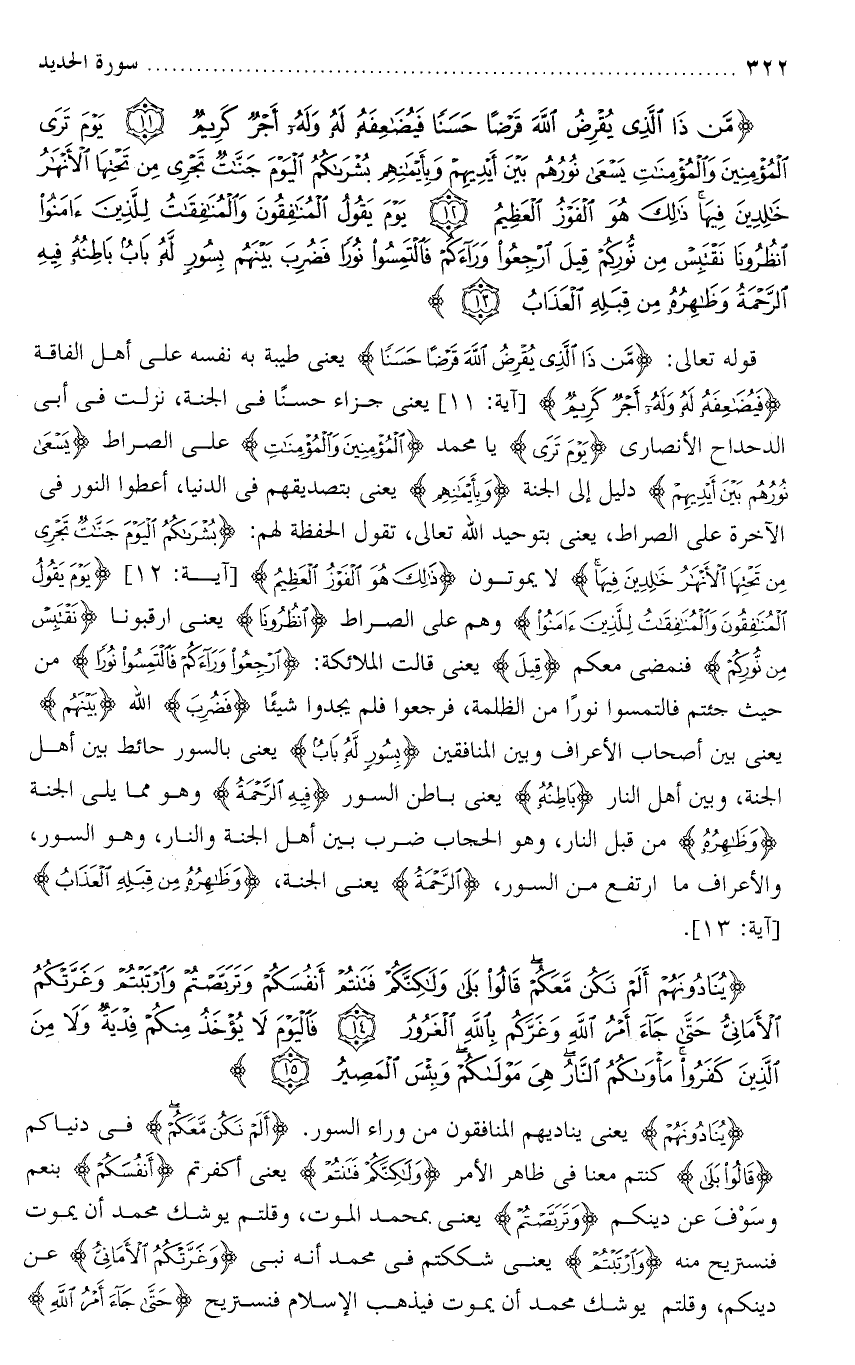 ٣٢٢ ........................................................................ سورة الحديد
﴿مَّن ذَا ٱلَّذِى يُقْرِضُ ٱللَّهَ قَرْضًا حَسَنًا فَيُضَٰعِفَهُۥ لَهُۥ وَلَهُۥٓ أَجْرٌ كَرِيمٌ ١١ يَوْمَ تَرَى
ٱلْمُؤْمِنِينَ وَٱلْمُؤْمِنَٰتِ يَسْعَىٰ نُورُهُم بَيْنَ أَيْدِيهِمْ وَبِأَيْمَٰنِهِم بُشْرَىٰكُمُ ٱلْيَوْمَ جَنَّٰتٌ تَجْرِى مِن تَحْتِهَا ٱلْأَنْهَٰرُ
خَٰلِدِينَ فِيهَا ۚ ذَٰلِكَ هُوَ ٱلْفَوْزُ ٱلْعَظِيمُ ١٢ يَوْمَ يَقُولُ ٱلْمُنَٰفِقُونَ وَٱلْمُنَٰفِقَٰتُ لِلَّذِينَ ءَامَنُوا۟
ٱنظُرُونَا نَقْتَبِسْ مِن نُّورِكُمْ قِيلَ ٱرْجِعُوا۟ وَرَآءَكُمْ فَٱلْتَمِسُوا۟ نُورًا فَضُرِبَ بَيْنَهُم بِسُورٍ لَّهُۥ بَابٌۢ بَاطِنُهُۥ فِيهِ
ٱلرَّحْمَةُ وَظَٰهِرُهُۥ مِن قِبَلِهِ ٱلْعَذَابُ ١٣﴾
قوله تعالى: ﴿مَّن ذَا ٱلَّذِى يُقْرِضُ ٱللَّهَ قَرْضًا حَسَنًا﴾ يعنى طيبة به نفسه على أهل الفاقة
﴿فَيُضَٰعِفَهُۥ لَهُۥ وَلَهُۥٓ أَجْرٌ كَرِيمٌ﴾ [آية: ١١] يعنى جزاء حسنًا فى الجنة، نزلت فى أبى
الدحداح الأنصارى ﴿يَوْمَ تَرَى﴾ يا محمد ﴿ٱلْمُؤْمِنِينَ وَٱلْمُؤْمِنَٰتِ﴾ على الصراط ﴿يَسْعَىٰ
نُورُهُم بَيْنَ أَيْدِيهِمْ﴾ دليل إلى الجنة ﴿وَبِأَيْمَٰنِهِم﴾ يعنى بتصديقهم فى الدنيا، أعطوا النور فى
الآخرة على الصراط، يعنى بتوحيد الله تعالى، تقول الحفظة لهم: ﴿بُشْرَىٰكُمُ ٱلْيَوْمَ جَنَّٰتٌ تَجْرِى
مِن تَحْتِهَا ٱلْأَنْهَٰرُ خَٰلِدِينَ فِيهَا ۚ﴾ لا يموتون ﴿ذَٰلِكَ هُوَ ٱلْفَوْزُ ٱلْعَظِيمُ﴾ [آية: ١٢] ﴿يَوْمَ يَقُولُ
ٱلْمُنَٰفِقُونَ وَٱلْمُنَٰفِقَٰتُ لِلَّذِينَ ءَامَنُوا۟﴾ وهم على الصراط ﴿ٱنظُرُونَا﴾ يعنى ارقبونا ﴿نَقْتَبِسْ
مِن نُّورِكُمْ﴾ فنمضى معكم ﴿قِيلَ﴾ يعنى قالت الملائكة: ﴿ٱرْجِعُوا۟ وَرَآءَكُمْ فَٱلْتَمِسُوا۟ نُورًا﴾ من
حيث جئتم فالتمسوا نورًا من الظلمة، فرجعوا فلم يجدوا شيئًا ﴿فَضُرِبَ﴾ الله ﴿بَيْنَهُم﴾
يعنى بين أصحاب الأعراف وبين المنافقين ﴿بِسُورٍ لَّهُۥ بَابٌۢ﴾ يعنى بالسور حائط بين أهل
الجنة، وبين أهل النار ﴿بَاطِنُهُۥ﴾ يعنى باطن السور ﴿فِيهِ ٱلرَّحْمَةُ﴾ وهو مما يلى الجنة
﴿وَظَٰهِرُهُۥ﴾ من قبل النار، وهو الحجاب ضرب بين أهل الجنة والنار، وهو السور،
والأعراف ما ارتفع من السور، ﴿ٱلرَّحْمَةُ﴾ يعنى الجنة، ﴿وَظَٰهِرُهُۥ مِن قِبَلِهِ ٱلْعَذَابُ﴾
[آية: ١٣].
﴿يُنَادُونَهُمْ أَلَمْ نَكُن مَّعَكُمْ ۖ قَالُوا۟ بَلَىٰ وَلَٰكِنَّكُمْ فَتَنتُمْ أَنفُسَكُمْ وَتَرَبَّصْتُمْ وَٱرْتَبْتُمْ وَغَرَّتْكُمُ
ٱلْأَمَانِىُّ حَتَّىٰ جَآءَ أَمْرُ ٱللَّهِ وَغَرَّكُم بِٱللَّهِ ٱلْغَرُورُ ١٤ فَٱلْيَوْمَ لَا يُؤْخَذُ مِنكُمْ فِدْيَةٌ وَلَا مِنَ
ٱلَّذِينَ كَفَرُوا۟ ۚ مَأْوَىٰكُمُ ٱلنَّارُ ۖ هِىَ مَوْلَىٰكُمْ ۖ وَبِئْسَ ٱلْمَصِيرُ ١٥﴾
﴿يُنَادُونَهُمْ﴾ يعنى يناديهم المنافقون من وراء السور. ﴿أَلَمْ نَكُن مَّعَكُمْ ۖ﴾ فى دنياكم
﴿قَالُوا۟ بَلَىٰ﴾ كنتم معنا فى ظاهر الأمر ﴿وَلَٰكِنَّكُمْ فَتَنتُمْ﴾ يعنى أكفرتم ﴿أَنفُسَكُمْ﴾ بنعم
وسَوْفَ عن دينكم ﴿وَتَرَبَّصْتُمْ﴾ يعنى بمحمد الموت، وقلتم يوشك محمد أن يموت
فنستريح منه ﴿وَٱرْتَبْتُمْ﴾ يعنى شككتم فى محمد أنه نبى ﴿وَغَرَّتْكُمُ ٱلْأَمَانِىُّ﴾ عن
دينكم، وقلتم يوشك محمد أن يموت فيذهب الإسلام فنستريح ﴿حَتَّىٰ جَآءَ أَمْرُ ٱللَّهِ﴾